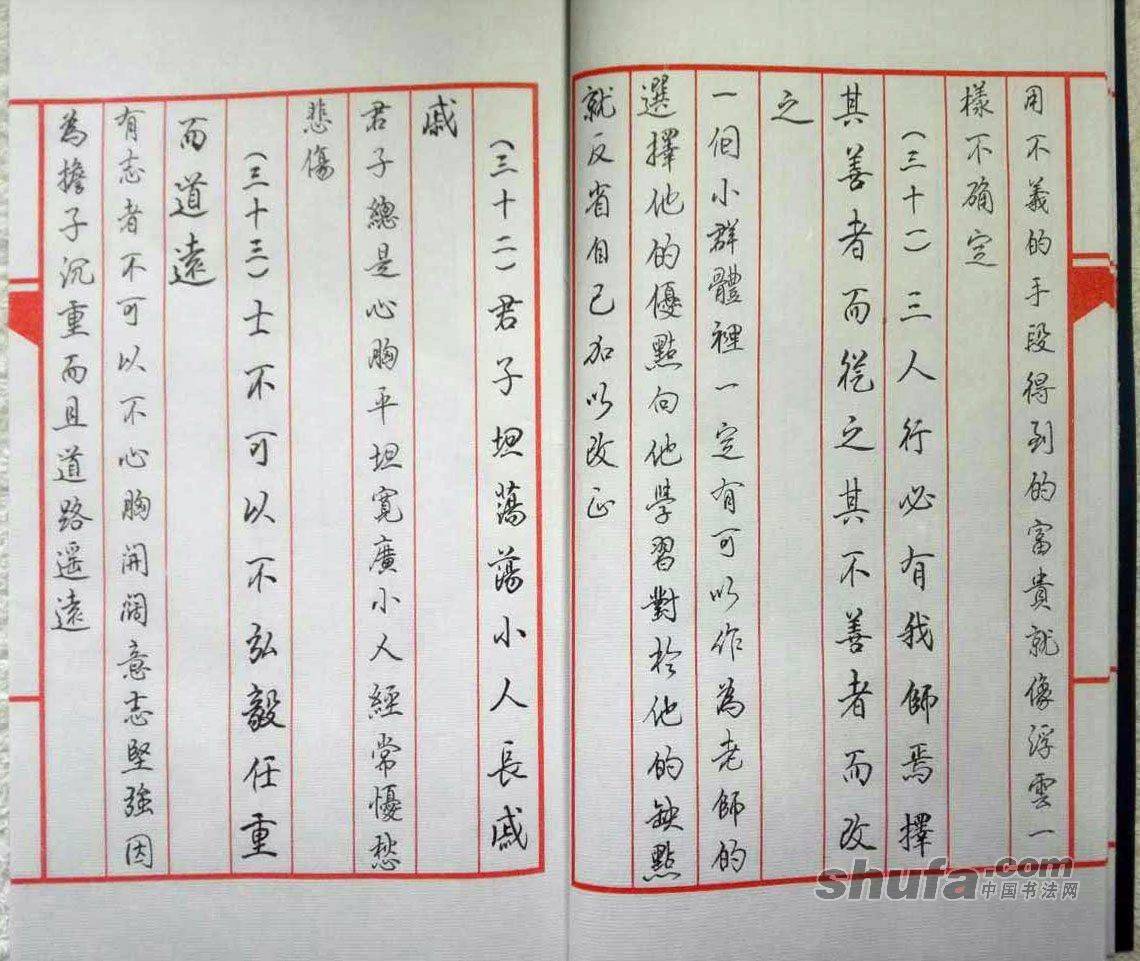 用不義的手段得到的富貴就像浮雲一
樣不确定
(三十一)三人行必有我師焉擇
其善者而從之其不善者而改
之
一個小群體裡一定有可以作為老師的
選擇他的優點向他學習對於他的缺點
就反省自己加以改正
(三十二)君子坦蕩蕩小人長戚
戚
君子總是心胸平坦寬廣小人經常憂愁
悲傷
(三十三)士不可以不弘毅任重
而道遠
有志者不可以不心胸開闊意志堅強因
為擔子沉重而且道路遥遠
shufa.com
中国书法网